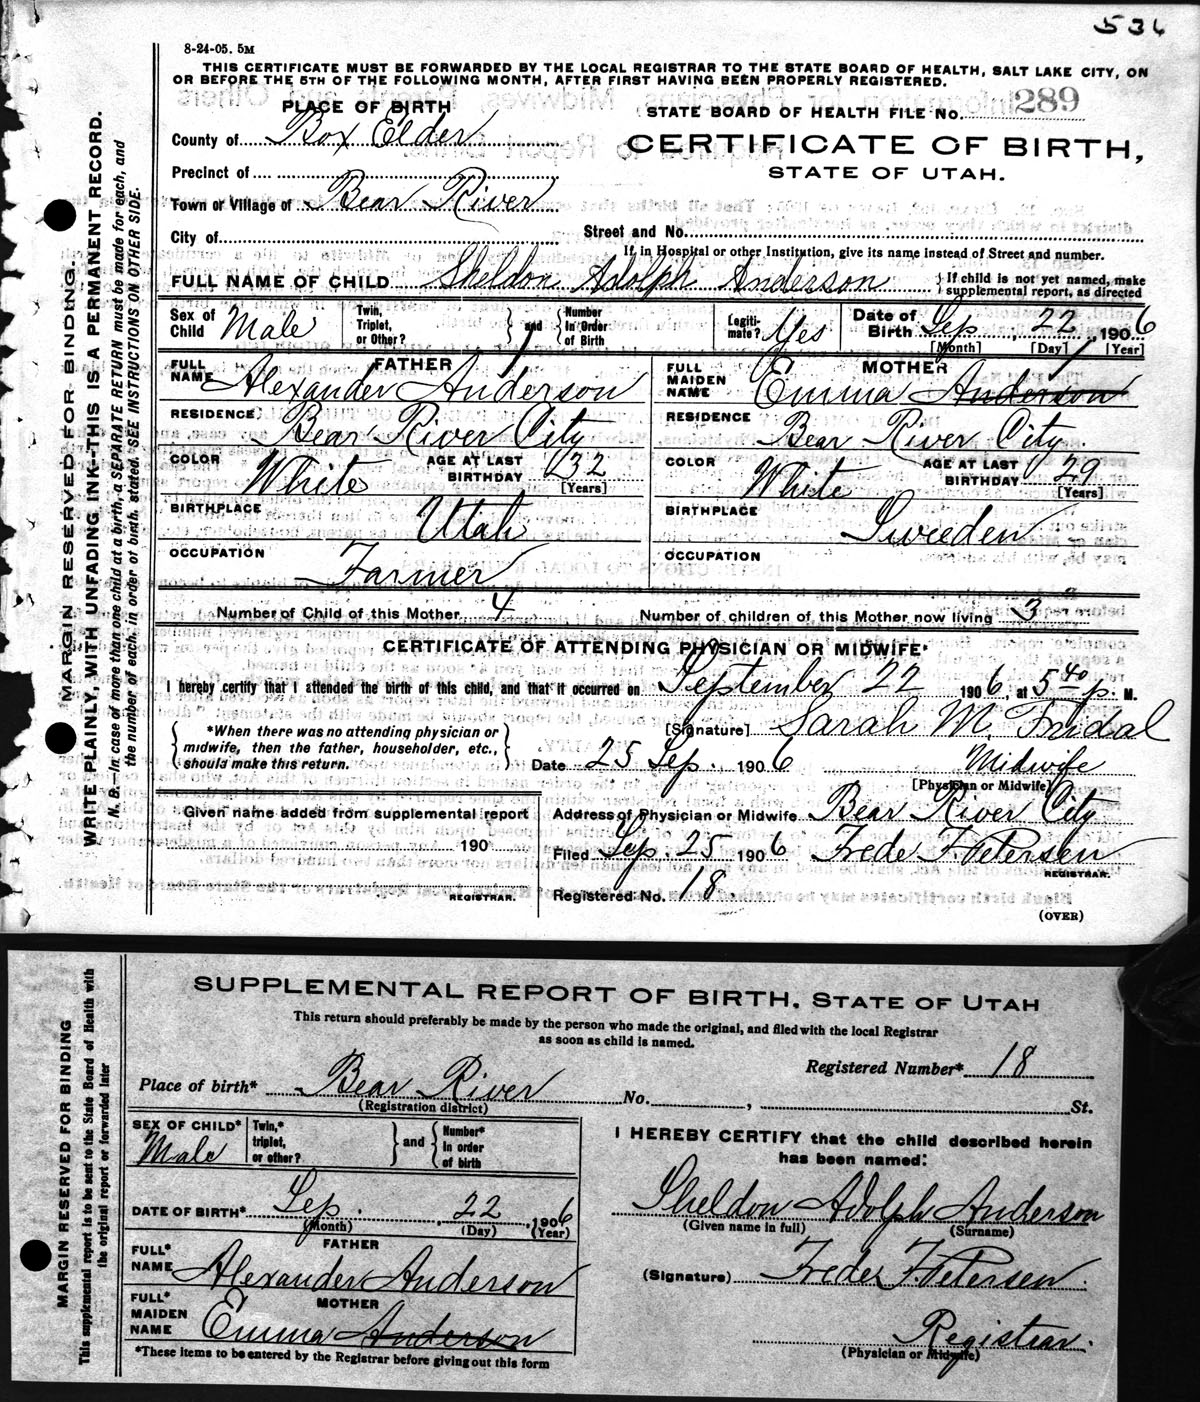 536
8-24-05. 5M
THIS CERTIFICATE MUST BE FORWARDED BY THE LOCAL REGISTRAR TO THE STATE BOARD OF HEALTH, SALT LAKE CITY, ON
OR BEFORE THE 5TH OF THE FOLLOWING MONTH, AFTER FIRST HAVING BEEN PROPERLY REGISTERED.
PLACE OF BIRTH
STATE BOARD OF HEALTH FILE No. 289
County of Box Elder
CERTIFICATE OF BIRTH,
STATE OF UTAH.
Precinct of
Town or Village of Bear River
City of
Street and No.
If in Hospital or other Institution, give its name instead of Street and number.
FULL NAME OF CHILD Sheldon Adolph Anderson } If child is not yet named, make supplemental report, as directed
Sex of Child Male Twin, Triplet, or Other? } and { Number In Order of Birth Legiti-mate? Yes Date of Birth Sep. 22, 1906
[Month] [Day] [Year]
FATHER MOTHER
FULL NAME Alexander Anderson FULL MAIDEN NAME Emma Anderson
RESIDENCE Bear River City RESIDENCE Bear River City
COLOR White AGE AT LAST BIRTHDAY 32 [Years] COLOR White AGE AT LAST BIRTHDAY 29 [Years]
BIRTHPLACE Utah BIRTHPLACE Sweeden
OCCUPATION Farmer OCCUPATION
Number of Child of this Mother 4 Number of children of this Mother now living 3
CERTIFICATE OF ATTENDING PHYSICIAN OR MIDWIFE*
I hereby certify that I attended the birth of this child, and that it occurred on September 22 1906, at 5 40 p. M.
{ *When there was no attending physician or midwife, then the father, householder, etc., should make this return. }
[Signature] Sarah M. Fridal
Date 25 Sep. 1906 Midwife
[Physician or Midwife]
Given name added from supplemental report
190
REGISTRAR.
Address of Physician or Midwife Bear River City
Filed Sep. 25 1906 Frede F. Petersen
REGISTRAR.
Registered No. 18.
(OVER)
MARGIN RESERVED FOR BINDING.
WRITE PLAINLY, WITH UNFADING INK--THIS IS A PERMANENT RECORD.
N. B.--In case of more than one child at a birth, a SEPARATE RETURN must be made for each, and
the number of each, in order of birth, stated. SEE INSTRUCTIONS ON OTHER SIDE.
SUPPLEMENTAL REPORT OF BIRTH, STATE OF UTAH
This return should preferably be made by the person who made the original, and filed with the local Registrar
as soon as child is named.
Registered Number* 18
Place of birth* Bear River No. , St.
(Registration district)
SEX OF CHILD* Male Twin,* triplet, or other? } and { Number* In order of birth
DATE OF BIRTH* Sep. 22, 1906
(Month) (Day) (Year)
FATHER
FULL* NAME Alexander Anderson
MOTHER
FULL* MAIDEN NAME Emma Anderson
*These items to be entered by the Registrar before giving out this form
I HEREBY CERTIFY that the child described herein
has been named:
Sheldon Adolph Anderson
(Given name in full) (Surname)
(Signature) Frede F. Petersen
Registrar.
(Physician or Midwife)
MARGIN RESERVED FOR BINDING
This supplemental report is to be sent to the State Board of Health with
the original report or forwarded later